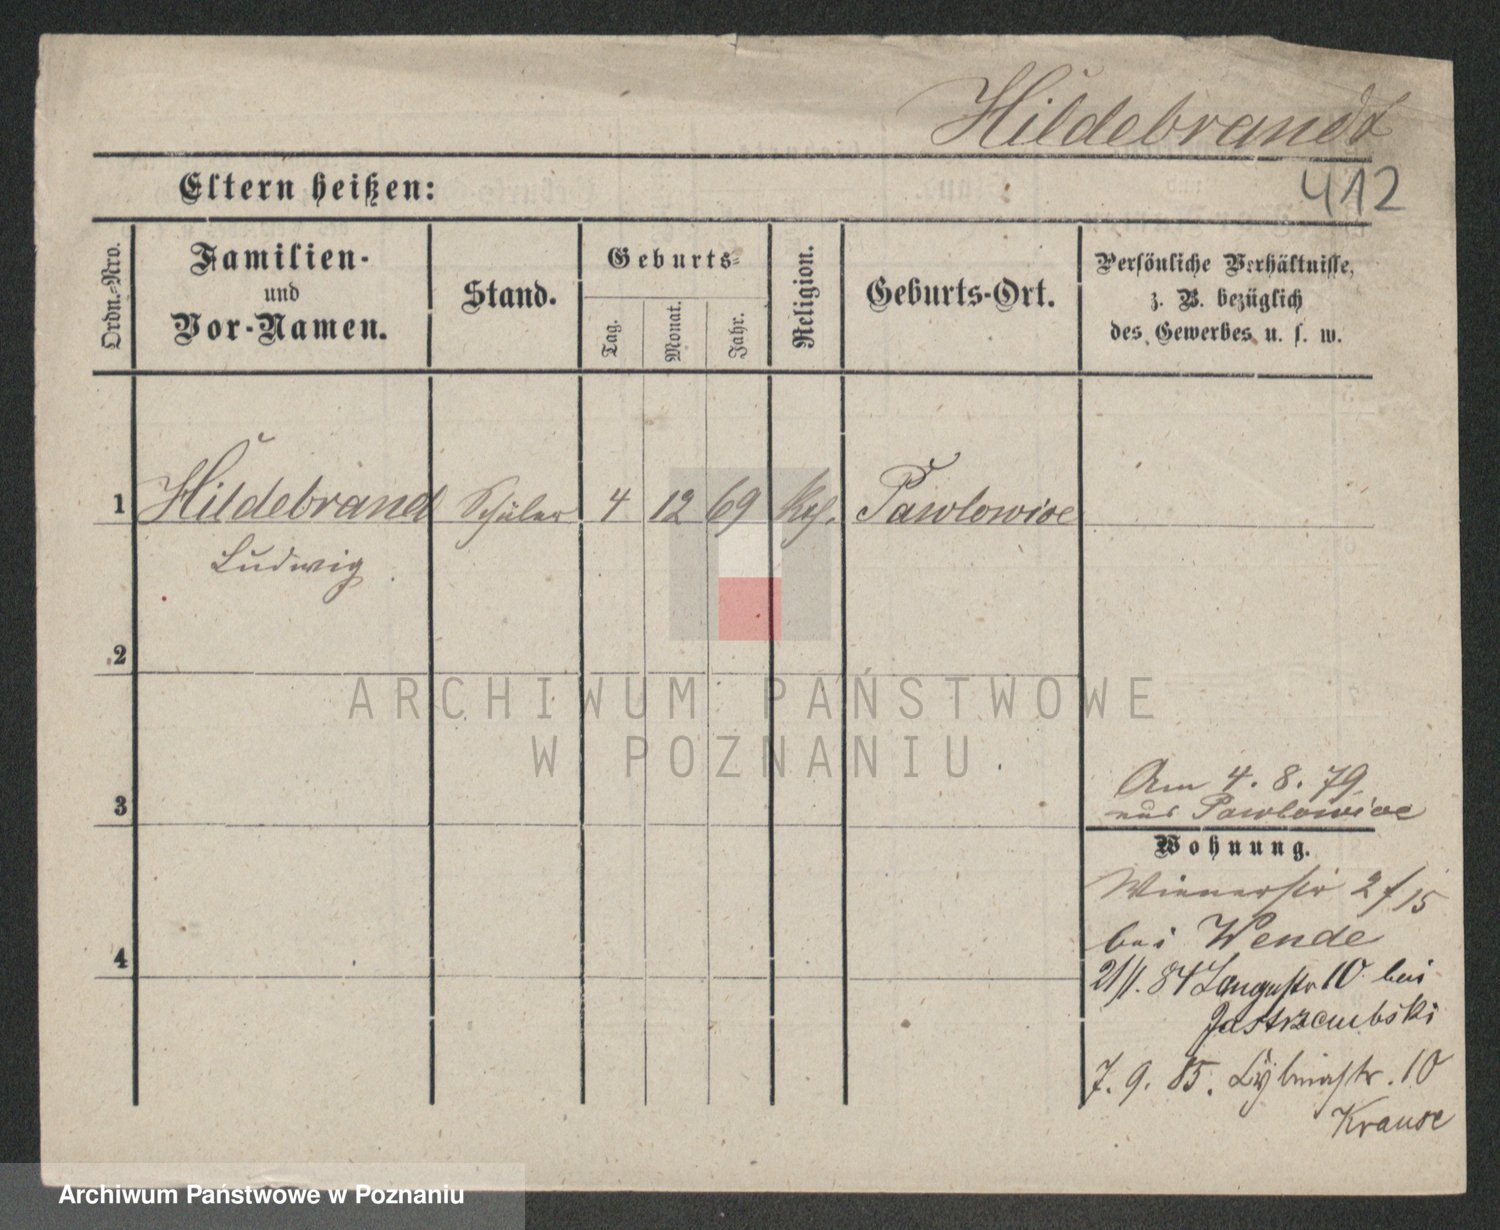 Hildebrandt
412
Eltern heißen:
Ordn.-Nro.
Familien-
und
Vor-Namen.
Stand.
Geburts-
Tag.
Monat.
Jahr.
Religion.
Geburts-Ort.
Persönliche Verhältnisse,
z. B. bezüglich
des Gewerbes u. s. w.
1 Hildebrand Schüler 4 12 69 Pawlowice
Ludwig
2
ARCHIWUM PAŃSTWOWE
W POZNANIU
3
Am 4. 8. 79
aus Pawlowice
Wohnung.
Wienerstr 2 / 15
bei Wende
4
21/1. 84 Langestr 10 bei
Jastrzembski
7. 9. 85. 10
Krause
Archiwum Państwowe w Poznaniu